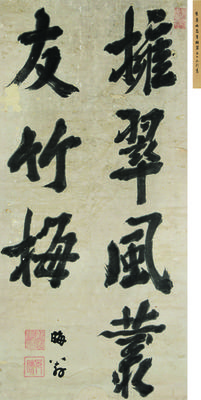 擁翠風叢
友竹梅
晦翁